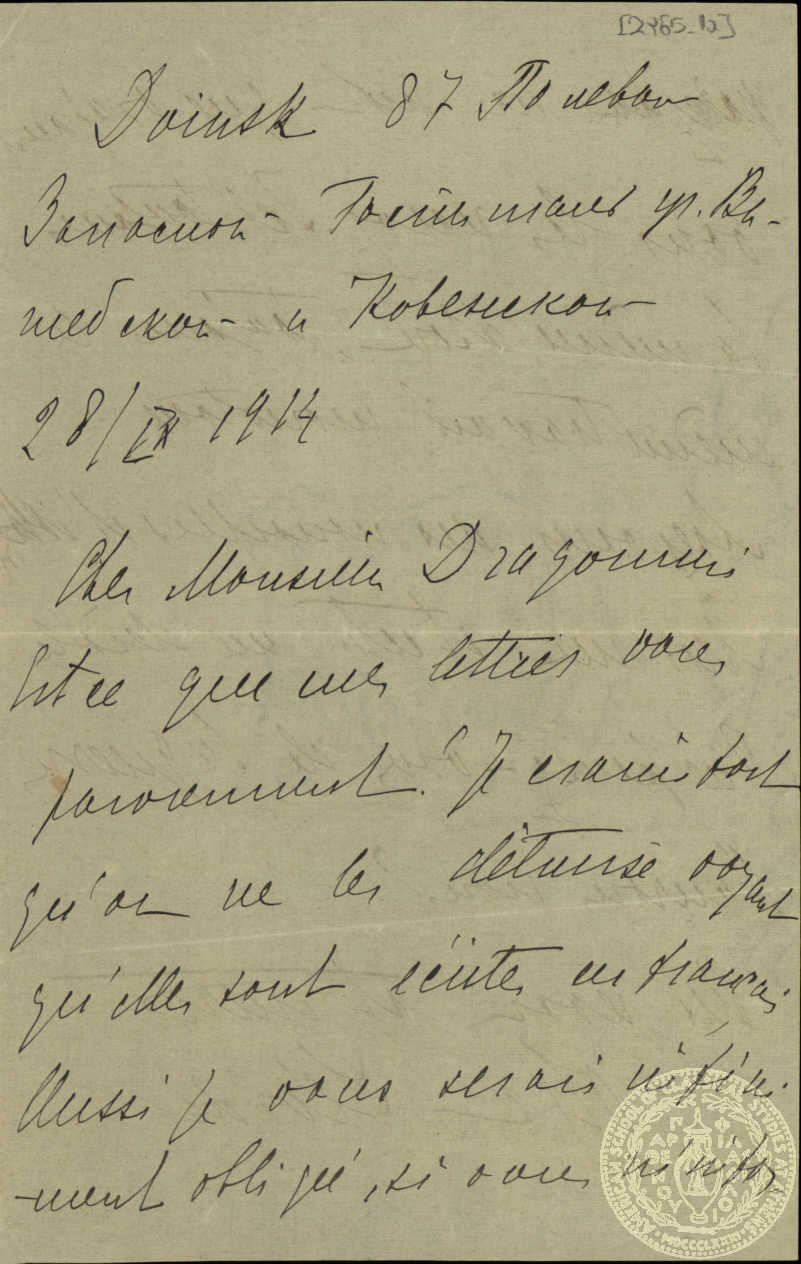 [2465_12]
Dvinsk 87 Полевой
Запасной Госпиталь ул. Ви-
тебской и Ковенской
28/IX 1914
Cher Monsieur Dragoumis
Est ce que mes lettres vous
parviennent? Je crains fort
qu'on ne les détruise voyant
qu'elles sont écrites en français
Aussi je vous serais infini-
ment obligé, si vous
AMERICAN SCHOOL STUDIES AT
MDCCCLXXXI